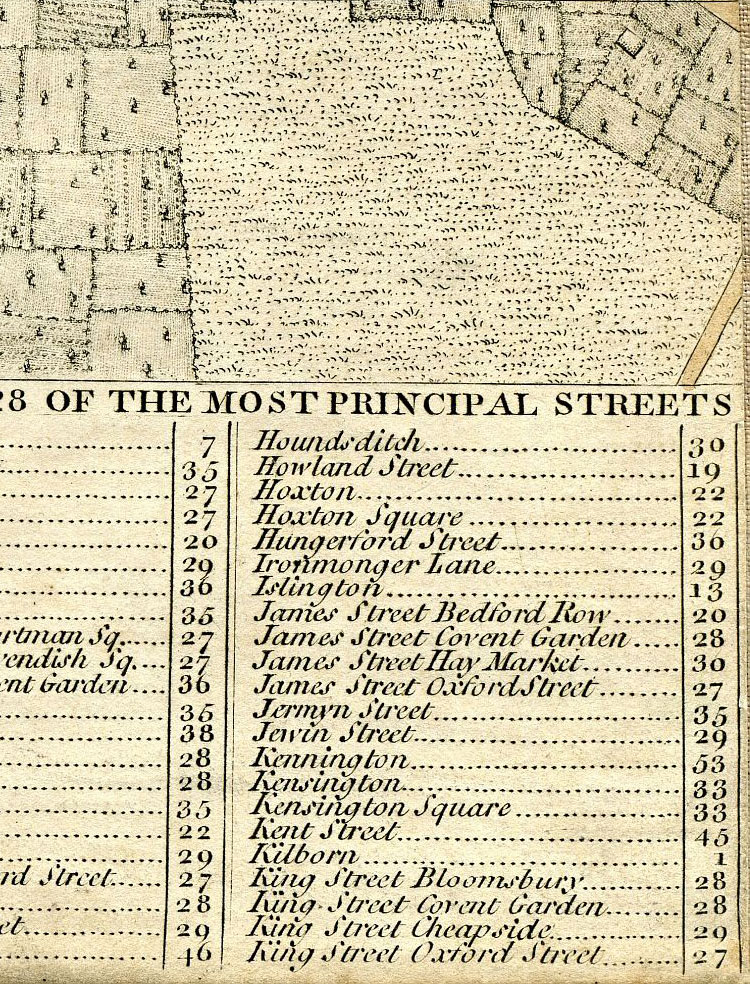 28 OF THE MOST PRINCIPAL STREETS
7
35
27
27
20
29
36
35
Sq. 27
Sq. 27
Garden 36
35
38
28
28
35
22
29
Street 27
28
29
46
Houndsditch 30
Howland Street 19
Hoxton 22
Hoxton Square 22
Hungerford Street 36
Ironmonger Lane 29
Islington 13
James Street Bedford Row 20
James Street Covent Garden 28
James Street Hay Market 30
James Street Oxford Street 27
Jermyn Street 35
Jewin Street 29
Kennington 53
Kensington 33
Kensington Square 33
Kent Street 45
Kilborn 1
King Street Bloomsbury 28
King Street Covent Garden 28
King Street Cheapside 29
King Street Oxford Street 27